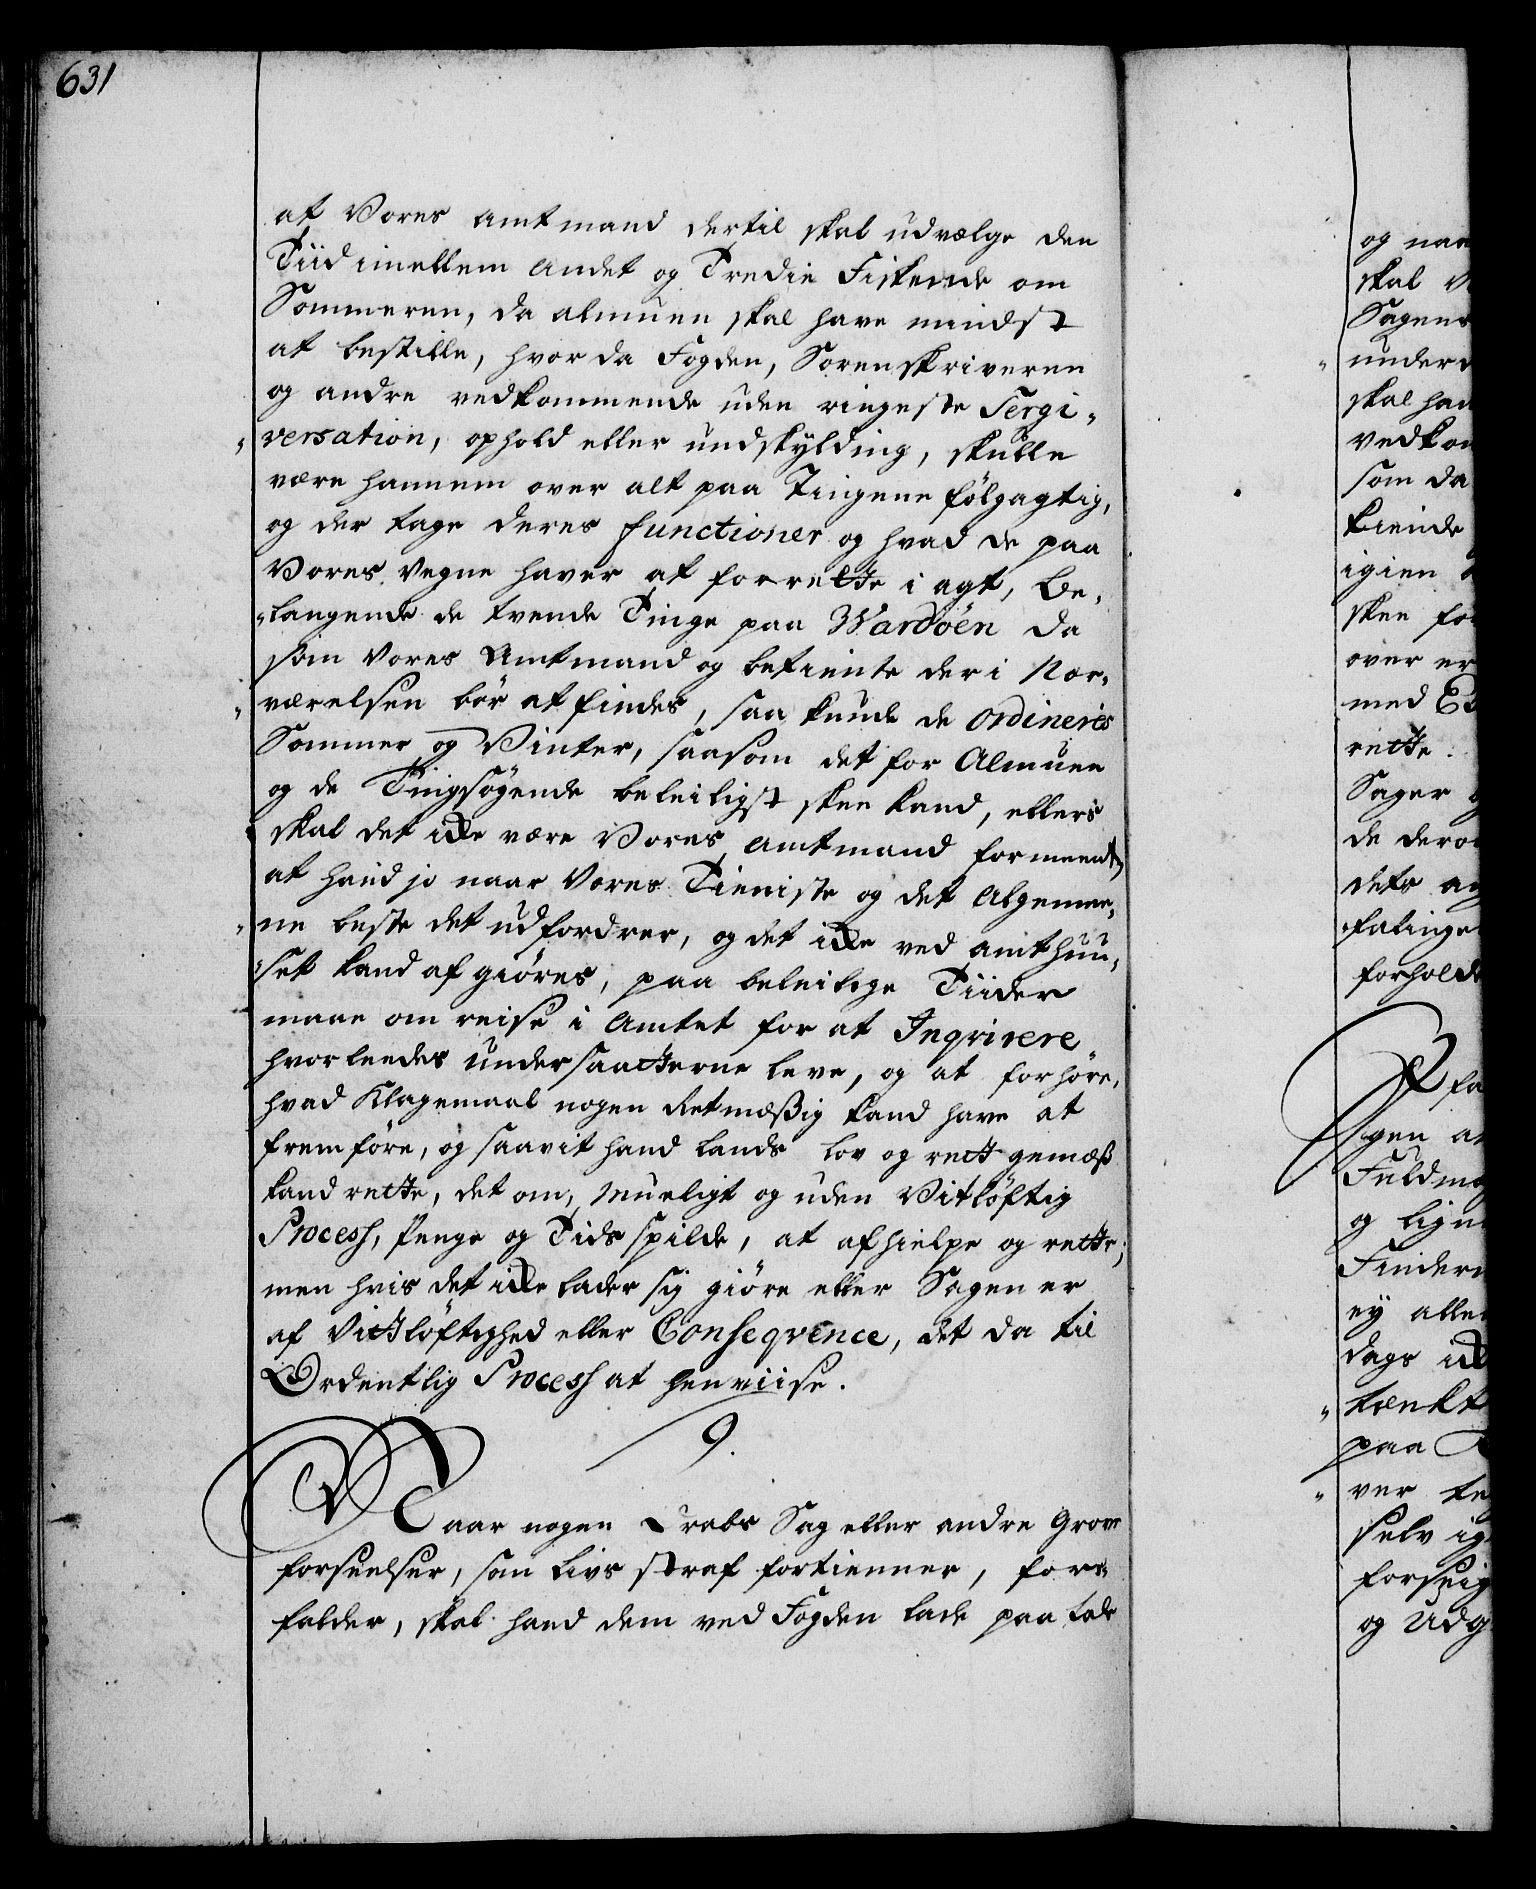 631
at Vores Amtmand dertil skal udvælge den
Tiid imellem Andet og Tredie Fiskende om
Sommeren, da almuen skal have mindst
at bestille, hvor da Fogden, Sorenskriveren
og andre vedkommende uden ringeste Tergi„
„versation, ophold eller undskylding, skulle
være hannem over alt paa Tingene følgagtig,
og der tage deres functioner og hvad de paa
Vores Vegne haver at forrette i agt, be„
„langende de tvende Tinge paa Wardöen da
som Vores Amtmand og betiente der i Nær„
„værelsen bör at findes, saa kunde de ordineris
Sommer og Vinter, saasom det for Almuen
og de Tingsøgende beleiligst skee kand, ellers
skal det icke være Vores Amtmand formeent
at hand jo naar Vores Tieniste og det Algemee„
„ne beste det udfordrer, og det icke ved amthuu„
„set kand af giöres, paa beleilige Tiider
maae om reise i Amtet for at Inqvirere
hvorleedes undersaatterne leve, og at forhöre,
hvad Klagemaal nogen Retmæßig kand have at
fremföre, og saavit hand lands lov og rett gemæß
kand rette, det om mueligt og uden Vitlöftig
Process, Penge og Tids spilde, at afhielpe og rette;
men hvis det icke lader sig giöre eller Sagen er
af Vitlöftighed eller Conseqvence, det da til
Ordentlig Process at henviise.
9.
Naar nogen Drabs Sag eller andre Grove
forseelser, som livs straf fortienner, for„
falder, skal hand dem ved Fogden lade paatale
og naa
skal V
Sagens
underd
skal han
vedkom
som da
kiende
igien
skee for
over er
med Ex
rette
Sager o
de dero
dets an
„falinge
forhold
fa
gen at
Fuldmæ
og lign
Findern
ey alle
dags ick
„tænkt
paa
„ver te
selv ig
forseig
og Udg